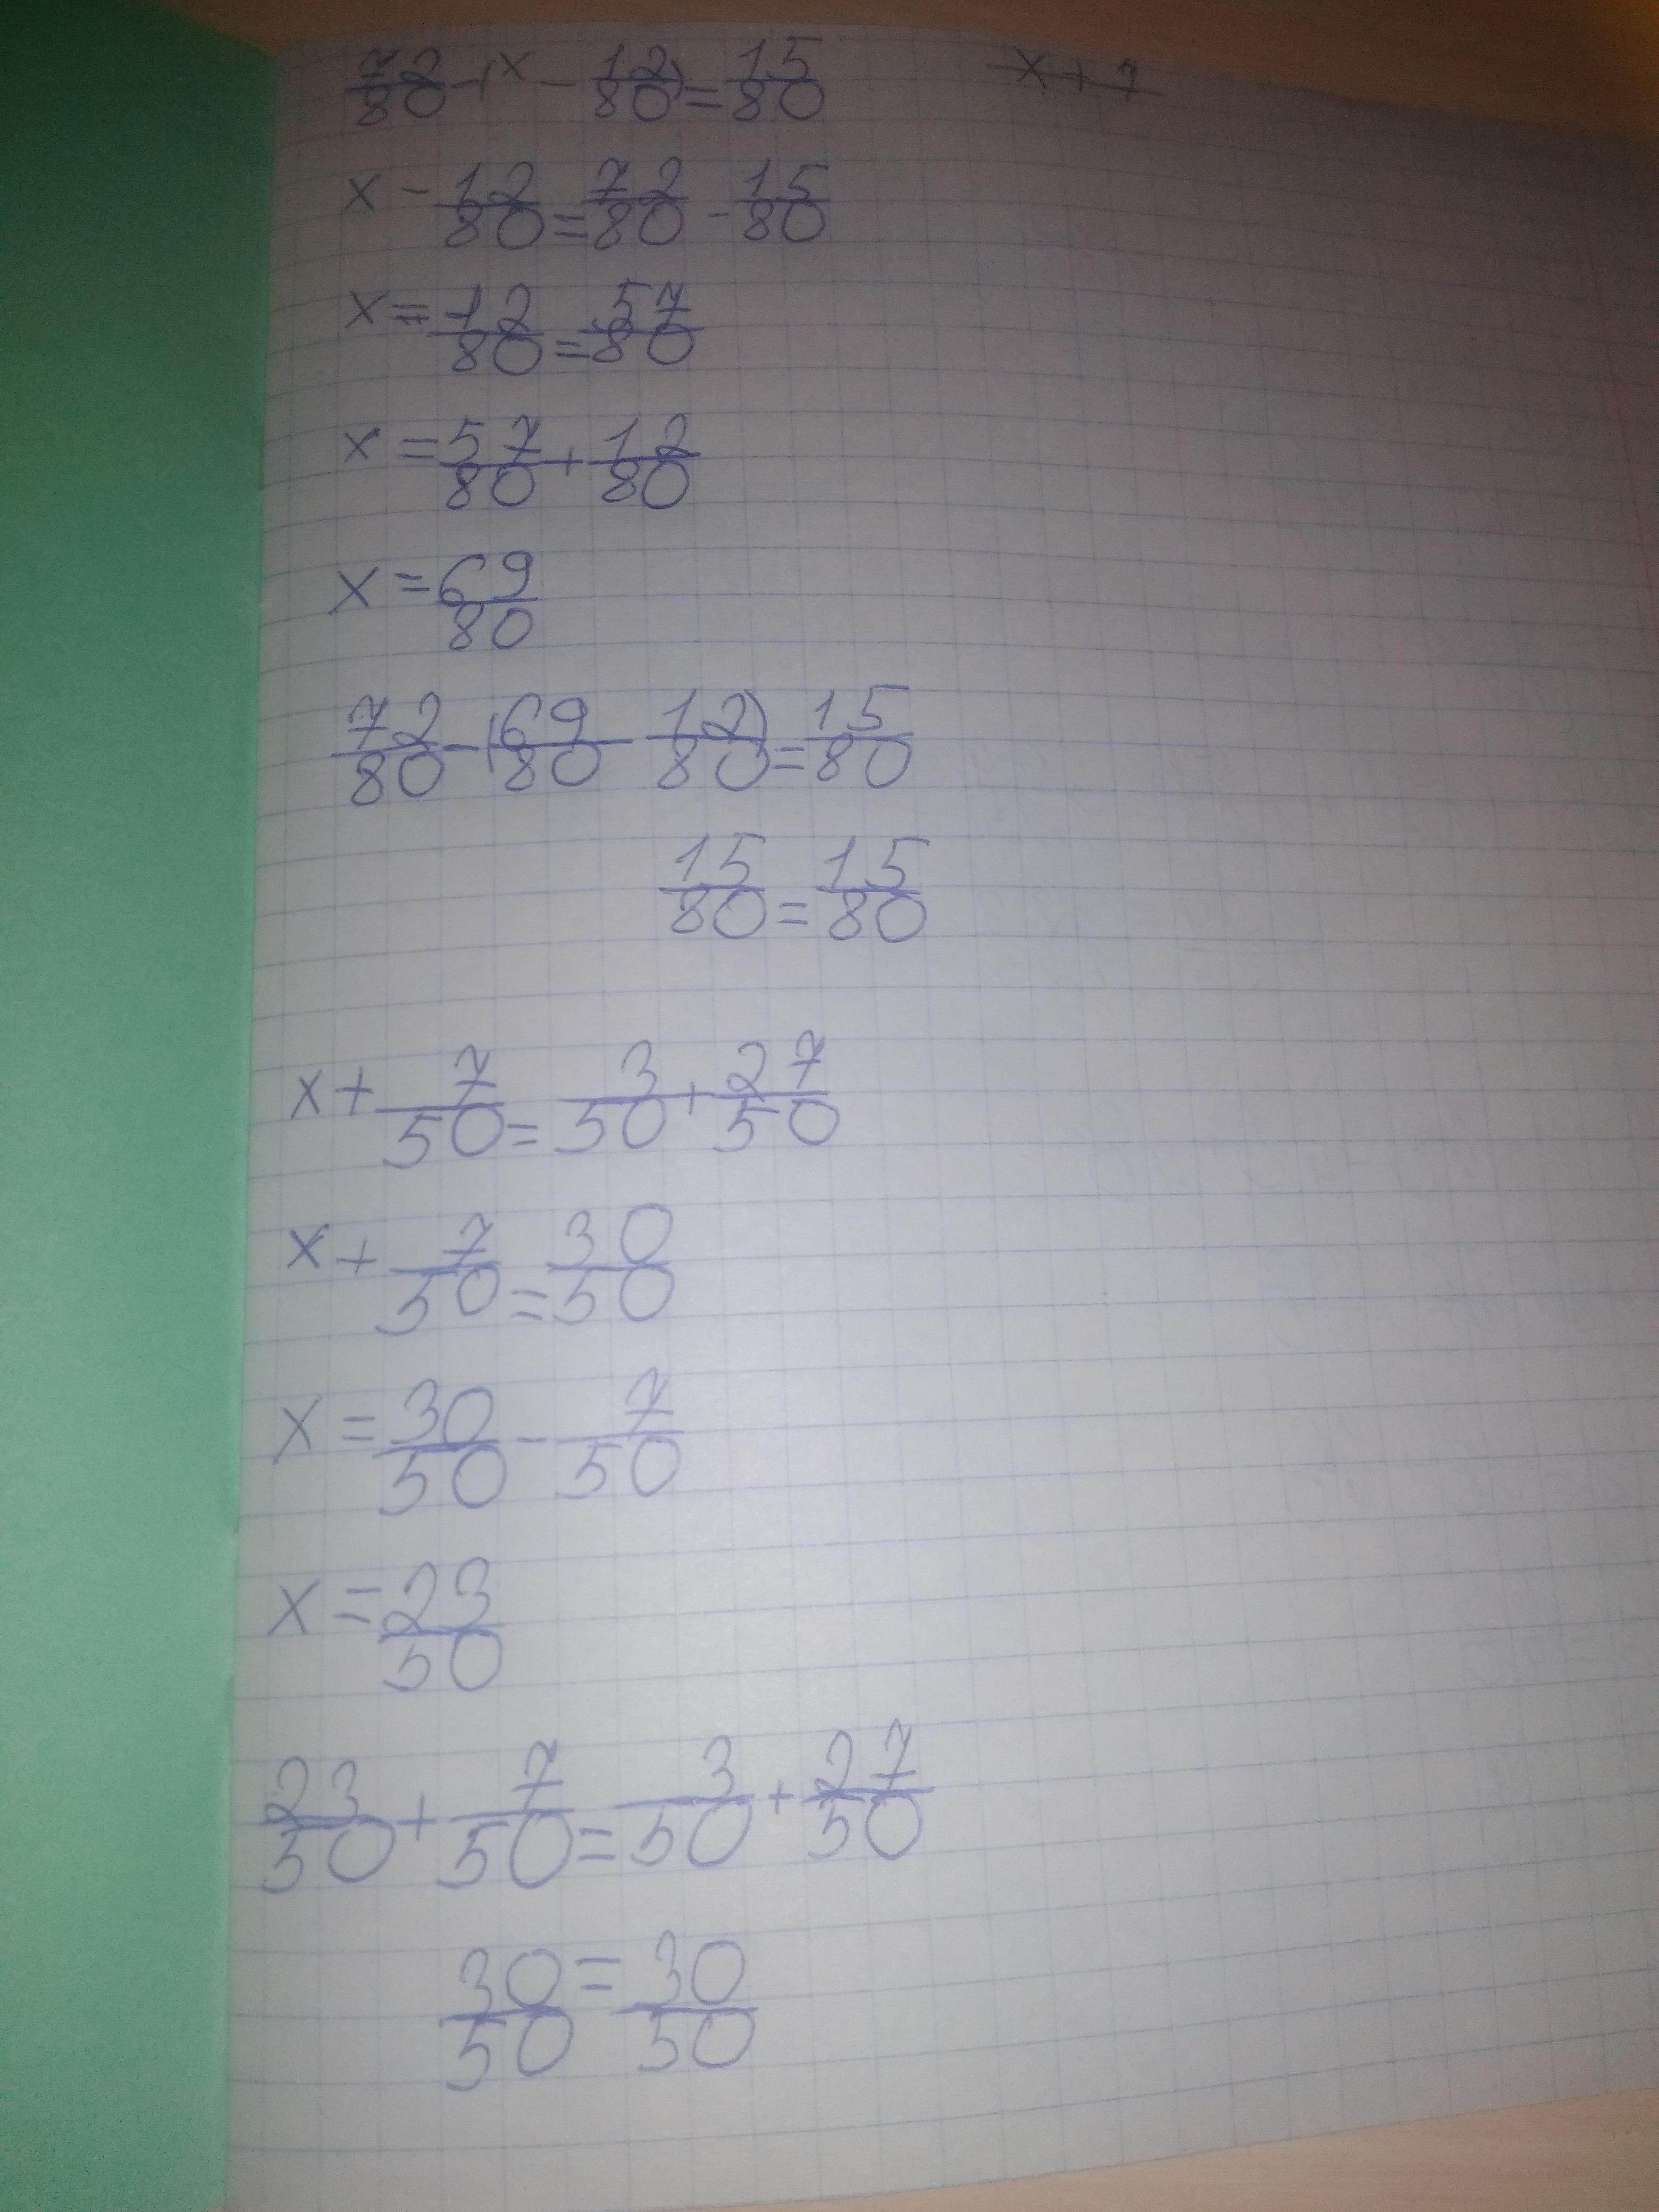 72/80 - (x - 12/80) = 15/80
x - 12/80 = 72/80 - 15/80
x = 12/80 = 57/80
x = 57/80 + 12/80
x = 69/80
72/80 - (69/80 - 12/80) = 15/80
15/80 = 15/80
x + 7/50 = 3/50 + 27/50
x + 7/50 = 30/50
x = 30/50 - 7/50
x = 23/50
23/50 + 7/50 = 3/50 + 27/50
30/50 = 30/50